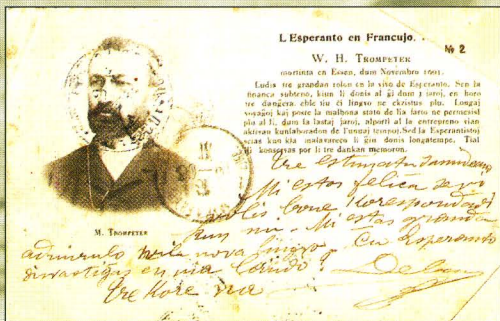 L Esperanto en Francujo.
№ 2
W. H. TROMPETER
mortinta en Essen, dum Novembro 1901.
Ludis tre grandan rolon en la vivo de Esperanto. Sen la
financa subteno, kiun li donis al ĝi dum 3 jaroj, en horo
tre danĝera, eble tiu ĉi lingvo ne ekzistus plu. Longaj
vojaĝoj kaj poste la malbona stato de lia farto ne permesis
plu al li, dum la lastaj jaroj, alporti al la entrepreno sian
aktivan kunlaboradon de l'unuaj tempoj. Sed la Esperantistoj
scias kun kia malavareco li ĝin donis longtempe. Tial
ili konservas por li tre dankan memoron.
M. TROMPETER
Tre estimata
Mi estos feliĉa se vi
volis bone korespondadi
kun mi. Mi estas granda
admiranto nova lingvo. Ĉu Esperanto
en via lando?
Tre kore via